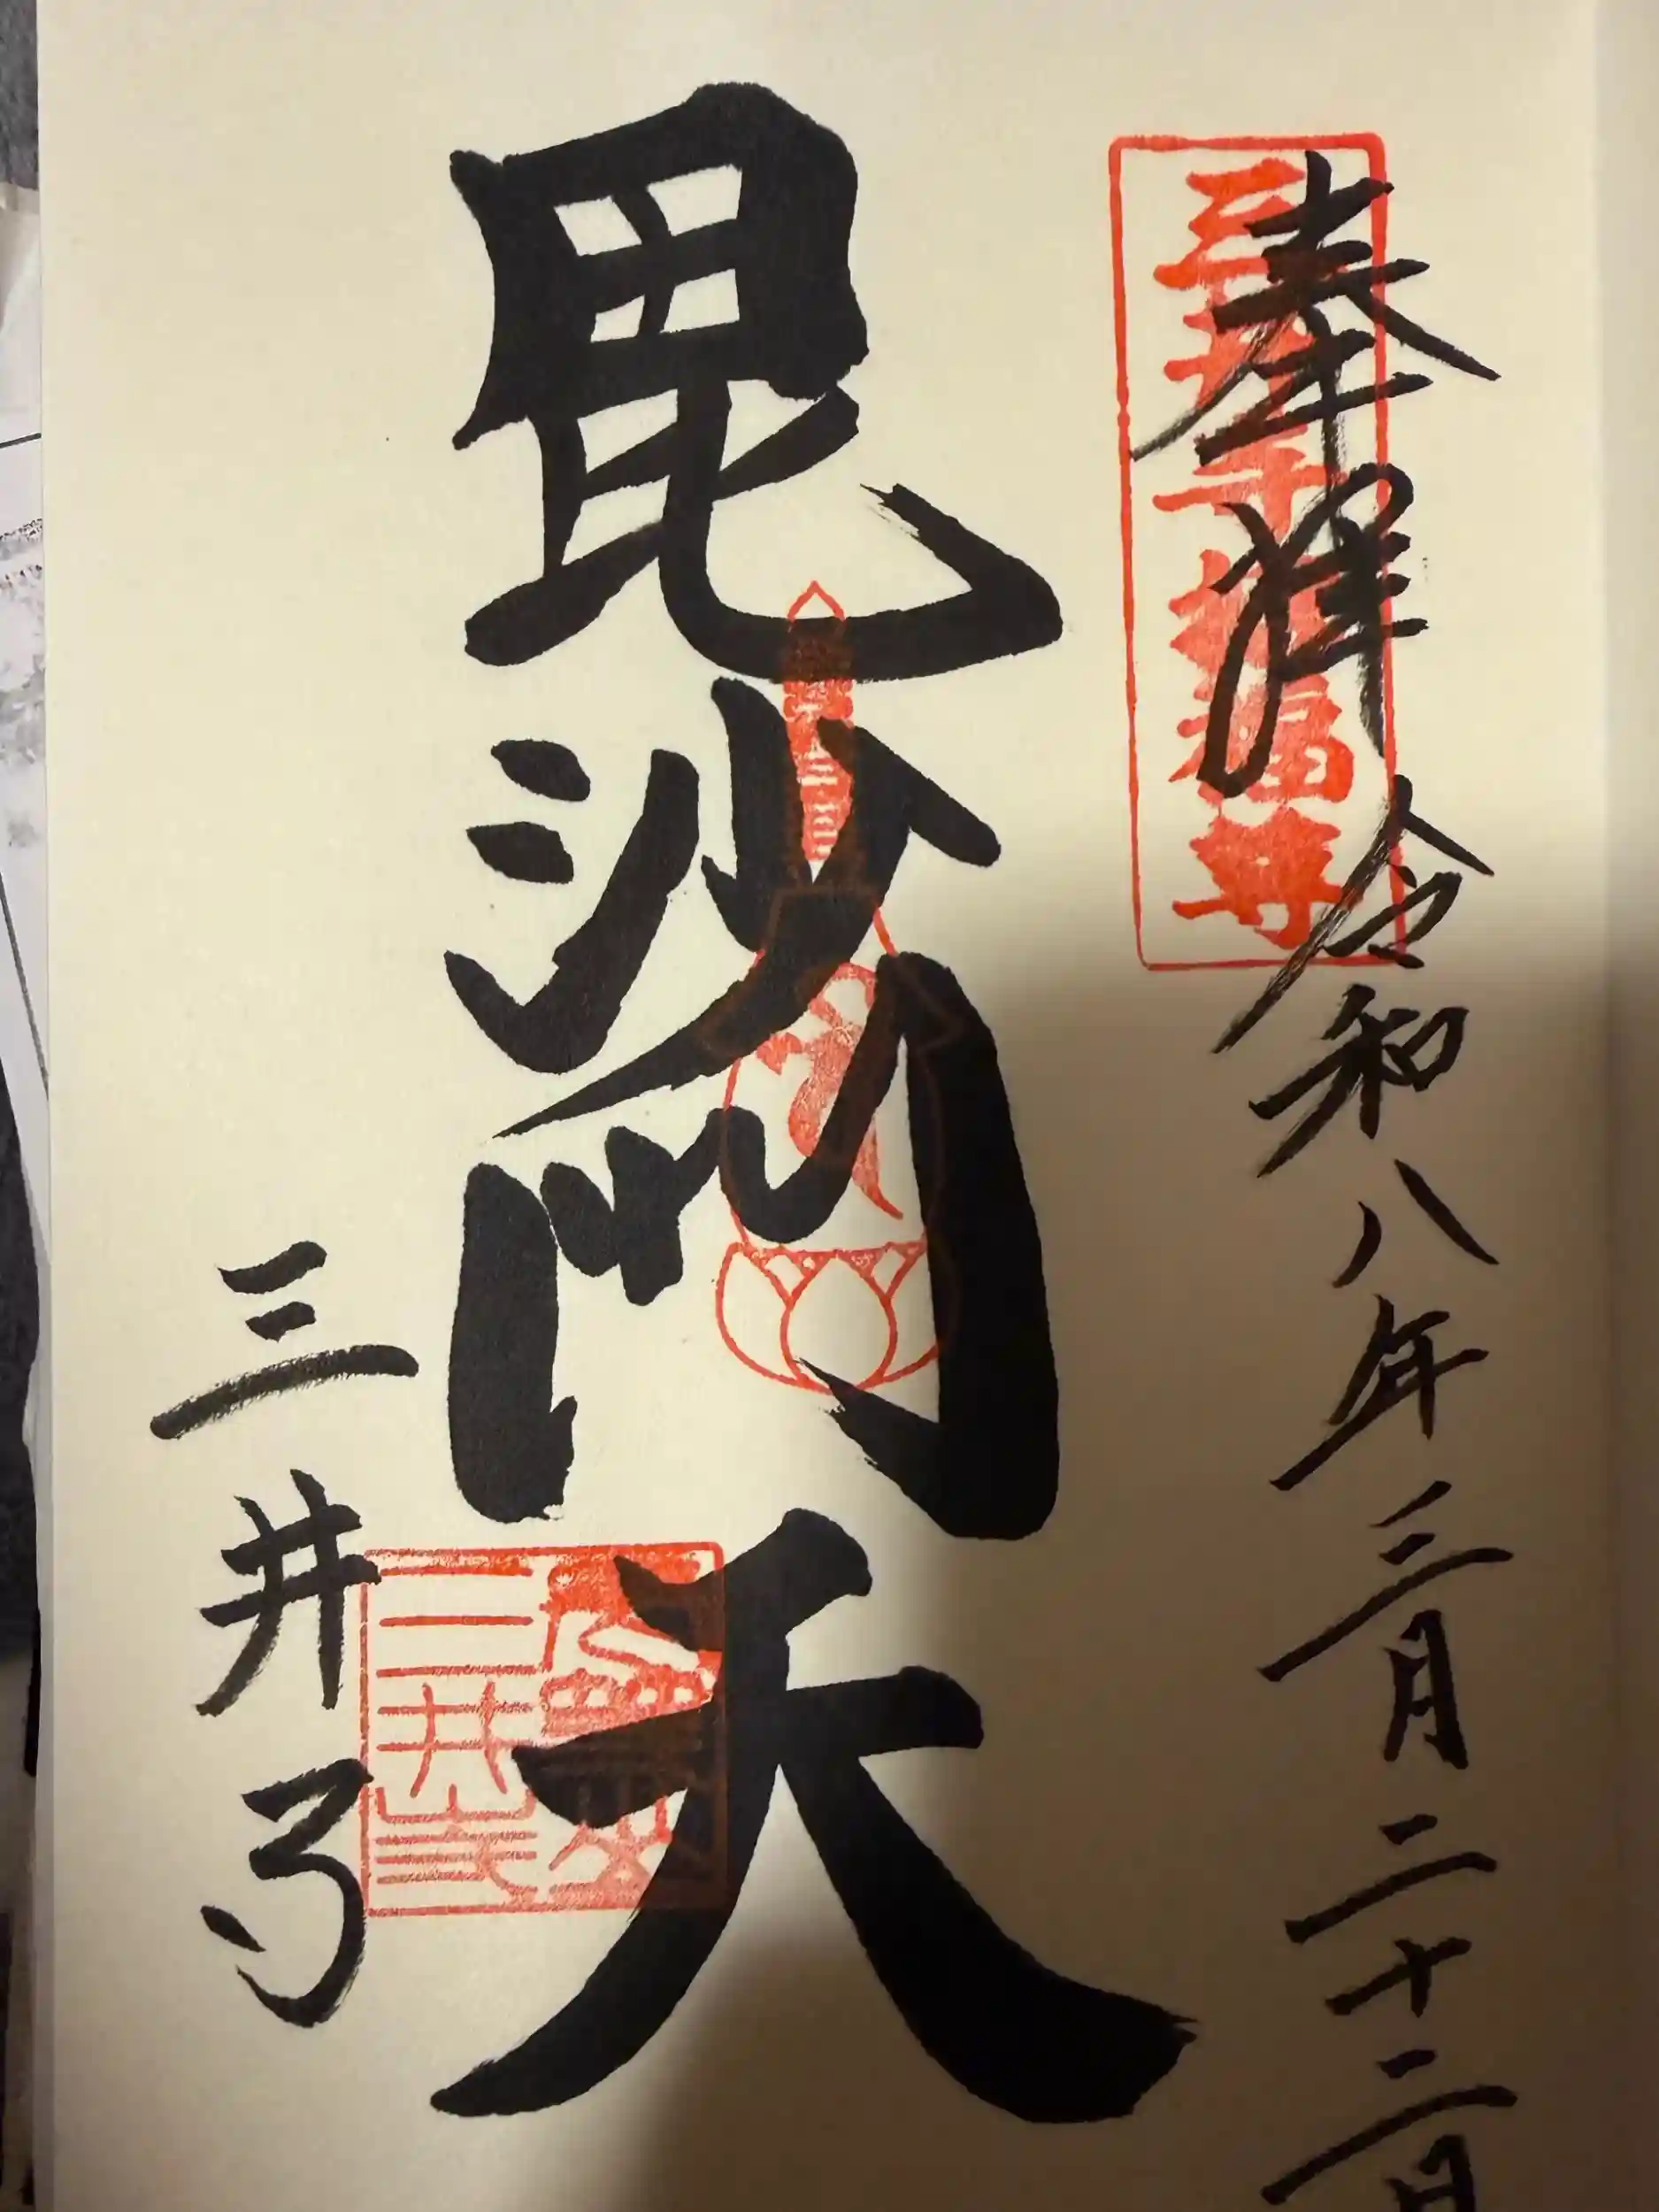 奉拝 令和八年三月二十二日
三井寺招福尊
毘沙門天
三井寺